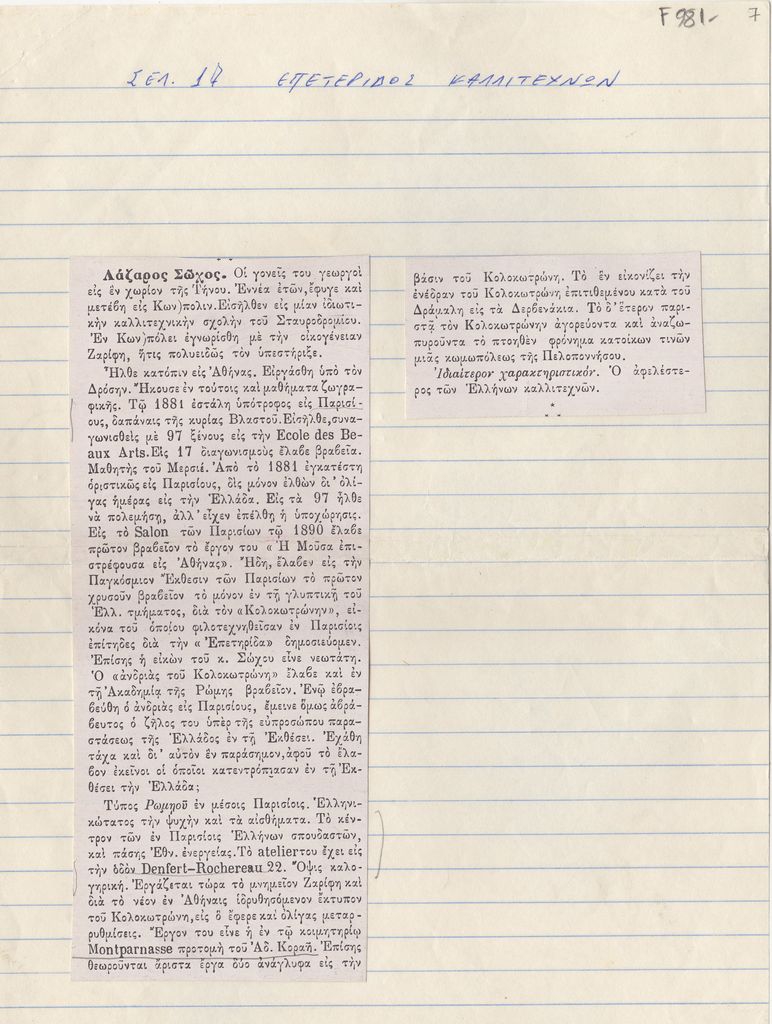 F 981- 7
ΣΕΛ. 17 ΕΠΕΤΕΡΙΔΟΣ ΚΑΛΛΙΤΕΧΝΩΝ
Λάζαρος Σῶχος. Οἱ γονεῖς του γεωργοὶ
εἰς ἓν χωρίον τῆς Τήνου. Ἐννέα ἐτῶν, ἔφυγε καὶ
μετέβη εἰς Κων)πολιν. Εἰσῆλθεν εἰς μίαν ἰδιωτι-
κὴν καλλιτεχνικὴν σχολὴν τοῦ Σταυροδρομίου.
Ἐν Κων)πόλει ἐγνωρίσθη μὲ τὴν οἰκογένειαν
Ζαρίφη, ἥτις πολυειδῶς τὸν ὑπεστήριξε.
Ἦλθε κατόπιν εἰς Ἀθήνας. Εἰργάσθη ὑπὸ τὸν
Δρόσην. Ἤκουσε ἐν τούτοις καὶ μαθήματα ζωγρα-
φικῆς. Τῷ 1881 ἐστάλη ὑπότροφος εἰς Παρισί-
ους, δαπάναις τῆς κυρίας Βλαστοῦ. Εἰσῆλθε, συνα-
γωνισθεὶς μὲ 97 ξένους εἰς τὴν Ecole des Be-
aux Arts. Εἰς 17 διαγωνισμοὺς ἔλαβε βραβεῖα.
Μαθητὴς τοῦ Μερσιέ. Ἀπὸ τὸ 1881 ἐγκατέστη
ὁριστικῶς εἰς Παρισίους, δὶς μόνον ἐλθὼν δι' ὀλί-
γας ἡμέρας εἰς τὴν Ἑλλάδα. Εἰς τὰ 97 ἦλθε
νὰ πολεμήσῃ, ἀλλ' εἶχεν ἐπέλθῃ ἡ ὑποχώρησις.
Εἰς τὸ Salon τῶν Παρισίων τῷ 1890 ἔλαβε
πρῶτον βραβεῖον τὸ ἔργον του « Ἡ Μοῦσα ἐπι-
στρέφουσα εἰς Ἀθήνας». Ἤδη, ἔλαβεν εἰς τὴν
Παγκόσμιον Ἔκθεσιν τῶν Παρισίων τὸ πρῶτον
χρυσοῦν βραβεῖον τὸ μόνον ἐν τῇ γλυπτικῇ τοῦ
Ἑλλ. τμήματος, διὰ τὸν «Κολοκωτρώνην», εἰ-
κόνα τοῦ ὁποίου φιλοτεχνηθεῖσαν ἐν Παρισίοις
ἐπίτηδες διὰ τὴν « Ἐπετηρίδα» δημοσιεύομεν.
Ἐπίσης ἡ εἰκὼν τοῦ κ. Σώχου εἶνε νεωτάτη.
Ὁ «ἀνδριὰς τοῦ Κολοκωτρώνη» ἔλαβε καὶ ἐν
τῇ Ἀκαδημίᾳ τῆς Ρώμης βραβεῖον. Ἐνῷ ἐβρα-
βεύθη ὁ ἀνδριὰς εἰς Παρισίους, ἔμεινε ὅμως ἀβρά-
βευτος ὁ ζῆλος του ὑπὲρ τῆς εὐπροσώπου παρα-
στάσεως τῆς Ἑλλάδος ἐν τῇ Ἐκθέσει. Ἐχάθη
τάχα καὶ δι' αὐτὸν ἓν παράσημον, ἀφοῦ τὸ ἔλα-
βον ἐκεῖνοι οἱ ὁποῖοι κατεντρόπιασαν ἐν τῇ Ἐκ-
θέσει τὴν Ἑλλάδα;
Τύπος Ρωμηοῦ ἐν μέσοις Παρισίοις. Ἑλληνι-
κώτατος τὴν ψυχὴν καὶ τὰ αἰσθήματα. Τὸ κέν-
τρον τῶν ἐν Παρισίοις Ἑλλήνων σπουδαστῶν,
καὶ πάσης Ἐθν. ἐνεργείας. Τὸ atelier του ἔχει εἰς
τὴν ὁδὸν Denfert–Rochereau 22. Ὄψις καλο-
γηρική. Ἐργάζεται τώρα τὸ μνημεῖον Ζαρίφη καὶ
διὰ τὸ νέον ἐν Ἀθήναις ἱδρυθησόμενον ἔκτυπον
τοῦ Κολοκωτρώνη, εἰς ὃ ἔφερε καὶ ὀλίγας μεταρ-
ρυθμίσεις. Ἔργον του εἶνε ἡ ἐν τῷ κοιμητηρίῳ
Montparnasse προτομὴ τοῦ Ἀδ. Κοραῆ. Ἐπίσης
θεωροῦνται ἄριστα ἔργα δύο ἀνάγλυφα εἰς τὴν
βάσιν τοῦ Κολοκωτρώνη. Τὸ ἓν εἰκονίζει τὴν
ἐνέδραν τοῦ Κολοκωτρώνη ἐπιτιθεμένου κατὰ τοῦ
Δράμαλη εἰς τὰ Δερβενάκια. Τὸ δ' ἕτερον παρι-
στᾷ τὸν Κολοκωτρώνην ἀγορεύοντα καὶ ἀναζω-
πυροῦντα τὸ πτοηθὲν φρόνημα κατοίκων τινῶν
μιᾶς κωμωπόλεως τῆς Πελοποννήσου.
Ἰδιαίτερον χαρακτηριστικόν. Ὁ ἀφελέστε-
ρος τῶν Ἑλλήνων καλλιτεχνῶν.